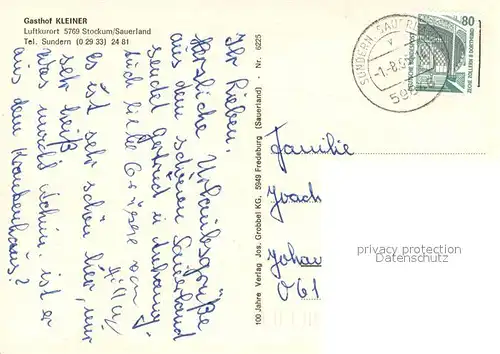 Gasthof KLEINER
Luftkurort 5769 Stockum/Sauerland
Tel. Sundern (0 29 33) 24 81
Ihr Lieben,
Herzliche Urlaubsgrüße
aus dem schönen Sauerland
sendet Gertrud u. Anhang.
auch liebe Grüsse von
Willy
es ist sehr schön hier, nur
sehr heiß.
was macht Achim, ist er
aus dem Krankenhaus?
100 Jahre Verlag Jos. Grobbel KG, 5949 Fredeburg (Sauerland) - Nr. 6225
SUNDERN, SAUERL
v
-1.-8.9
59
80
DEUTSCHE BUNDESPOST
ZECHE ZOLLERN II DORTMUND
Familie
Joach
Johan
061
privacy protection
privacy protection